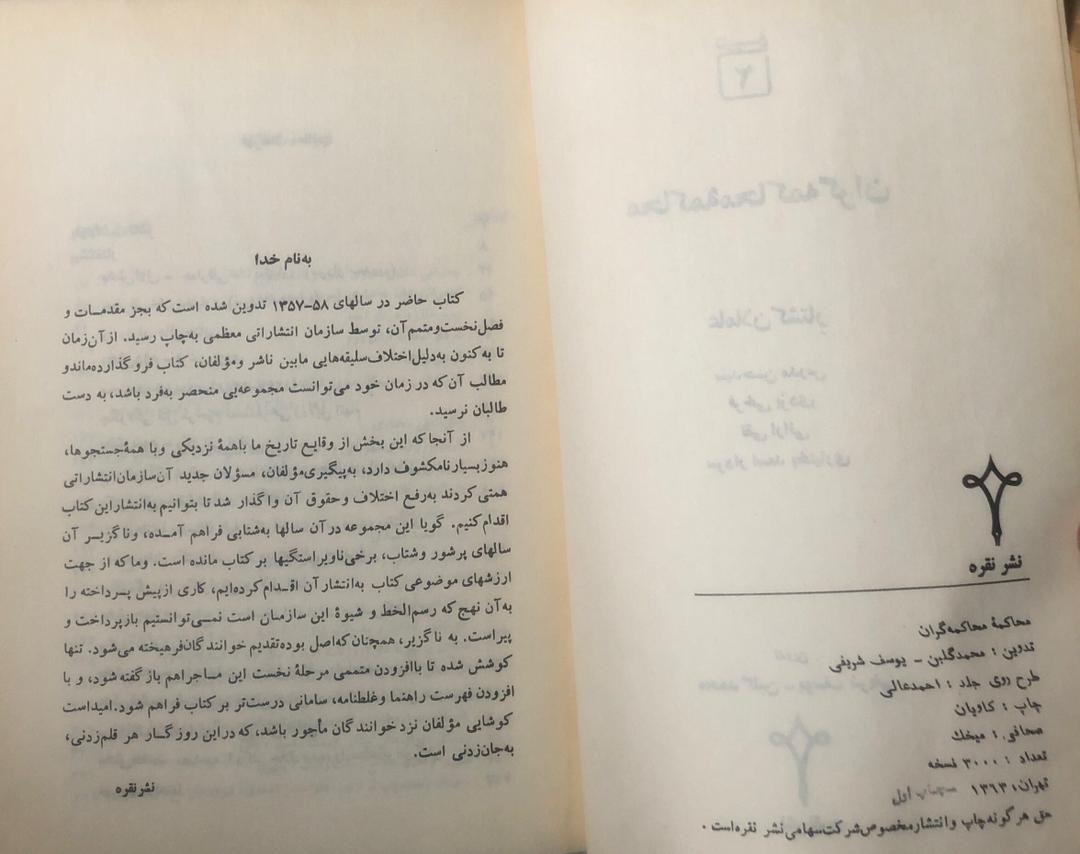 نشر نقره
محاکمهٔ محاکمه‌گران
تدوین : محمدگلبن - یوسف شریفی
طرح روی جلد : احمدعالی
چاپ : کاویان
صحافی : میخک
تعداد : ۳۰۰۰ نسخه
تهران، ۱۳۶۳ اول
حق هرگونه‌چاپ وانتشارمخصوص‌شرکت‌سهامی‌نشر نقره‌است .
به‌نام خدا
کتاب حاضر در سالهای ۵۸-۱۳۵۷ تدوین شده است‌که بجز مقدمات و
فصل‌نخست‌ومتمم‌آن، توسط سازمان انتشاراتی معظمی به‌چاپ رسید. ازآن‌زمان
تا به‌کنون به‌دلیل‌اختلاف‌سلیقه‌هایی مابین ناشر ومؤلفان، کتاب فروگذارده‌ماندو
مطالب آن‌که در زمان خود می‌توانست مجموعه‌یی منحصر به‌فرد باشد، به دست
طالبان نرسید.
از آنجاکه این بخش از وقایع تاریخ ما باهمهٔ نزدیکی وبا همهٔ‌جستجوها،
هنوزبسیارنامکشوف دارد، به‌پیگیری‌مؤلفان، مسؤلان جدید آن‌سازمان‌انتشاراتی
همتی کردند به‌رفع اختلاف وحقوق آن واگذار شد تا بتوانیم به‌انتشاراین کتاب
اقدام‌کنیم. گویا این مجموعه درآن سالها به‌شتابی فراهم آمده، وناگزیر آن
سالهای پرشور وشتاب، برخی‌ناویراستگیها برکتاب مانده است. وماکه از جهت
ارزشهای موضوعی‌کتاب به‌انتشارآن اقدام‌کرده‌ایم، کاری ازپیش پرداخته را
به‌آن نهج که رسم‌الخط و شیوهٔ این سازمان است نمی‌توانستیم بازپرداخت و
پیراست. به ناگزیر، همچنان‌که‌اصل بوده‌تقدیم خوانندگان‌فرهیخته می‌شود. تنها
کوشش شده تا باافزودن متممی مرحلهٔ نخست این ماجراهم بازگفته شود، و با
افزودن فهرست راهنما وغلطنامه، سامانی درست‌تر برکتاب فراهم شود.امیداست
کوشایی مؤلفان نزد خوانندگان مأجور باشد، که دراین روزگار هر قلم‌زدنی،
به‌جان‌زدنی است.
نشرنقره